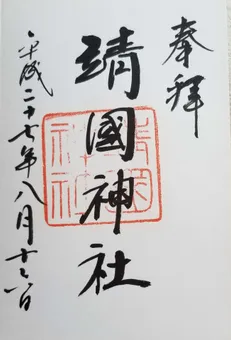 奉拝
靖國神社
平成二十七年八月十六日
靖國
神社